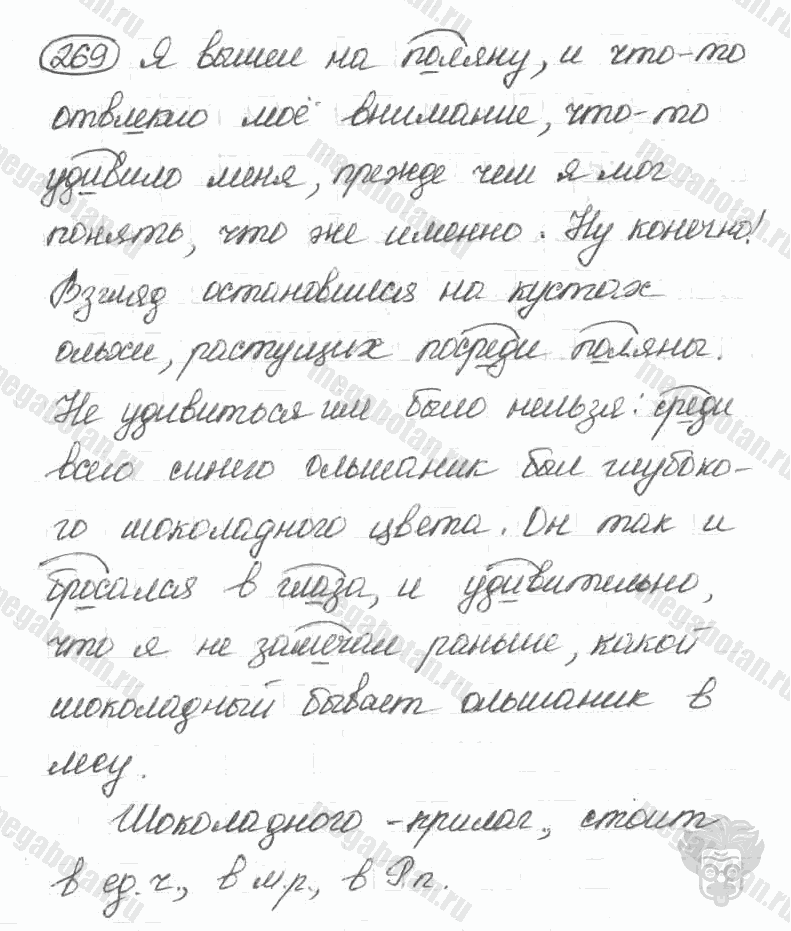 269 Я вышел на поляну, и что-то
отвлекло моё внимание, что-то
удивило меня, прежде чем я мог
понять, что же именно. Ну конечно!
Взгляд остановился на кустах
ольхи, растущих посреди поляны.
Не удивиться им было нельзя: среди
всего синего ольшаник был глубоко-
го шоколадного цвета. Он так и
бросался в глаза, и удивительно,
что я не замечал раньше, какой
шоколадный бывает ольшаник в
лесу.
Шоколадного - прилаг., стоит
в ед.ч., в м.р., в Р.п.
megabotan.ru